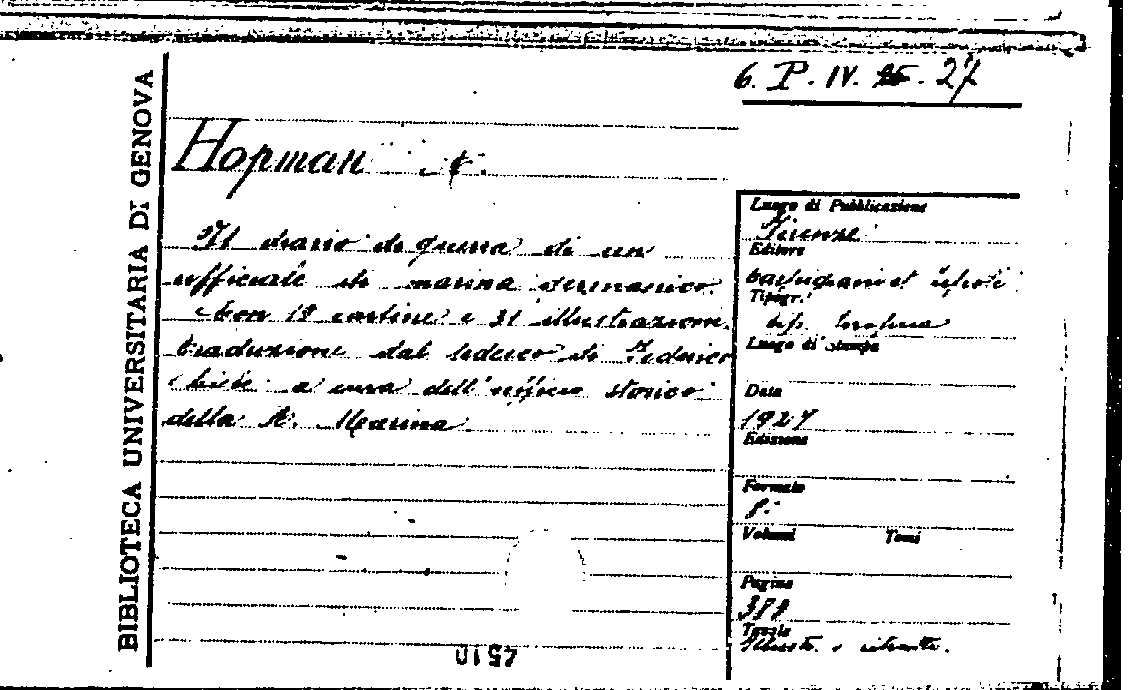 BIBLIOTECA UNIVERSITARIA DI GENOVA
6. P. IV. 27
Hopman A.
Il diario di guerra di un
ufficiale di marina germanico.
Con 19 cartine e 31 illustrazioni.
traduzione dal tedesco di Federico
a cura dell'ufficio storico
della R. Marina
Luogo di Pubblicazione
Firenze
Editore
Tipogr.
tip.
Luogo di stampa
Data
1927
Edizione
Formato
8.
Volumi Tomi
Pagine
Tavole
illustr. e ritratti.
4510